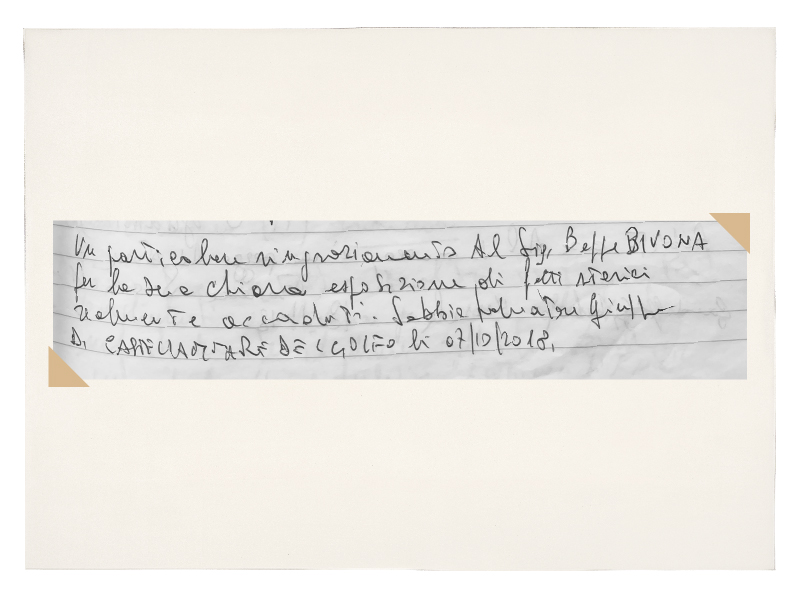 Un particolare ringraziamento Al Sig. Beppe BIVONA
per la sua chiara esposizione di fatti storici
realmente accaduti. Sabbia Salvatore Giuseppe
Di CASTELLAMMARE DEL GOLFO li 07/10/2018.